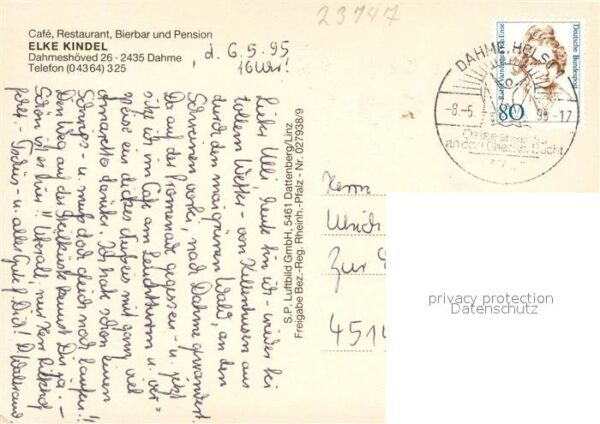 23747
Café, Restaurant, Bierbar und Pension
ELKE KINDEL
Dahmeshöved 26 · 2435 Dahme
Telefon (04364) 325
d. 6.5.95
16 Uhr!
Lieber Ulli, heute bin ich wieder bei
tollem Wetter - von Kellenhusen aus
durch den maigrünen Wald, an den
Schweinen vorbei, nach Dahme gewandert.
Da auf der Promenade gegessen - u. jetzt
sitz ich im Café am Leuchtturm u. ver-
speise ein dickes Stück Eis mit ganz viel
Amaretto darüber. Ich habe schon einen
Schwips - u. muß doch gleich noch laufen!!
Den Weg auf der Steilküste kennst Du ja. -
Schön ist es hier!!
Tschüs - u. alles Gute f. Dich!
S.P. Luftbild GmbH, 5461 Dattenberg/Linz
Freigabe Bez.-Reg. Rheinh.-Pfalz - Nr. 027938/9
Deutsche Bundespost
80
DAHME, HOLST
-8.-5.
95-17
Herrn
Ulrich
Zur
4514
privacy protection
Datenschutz